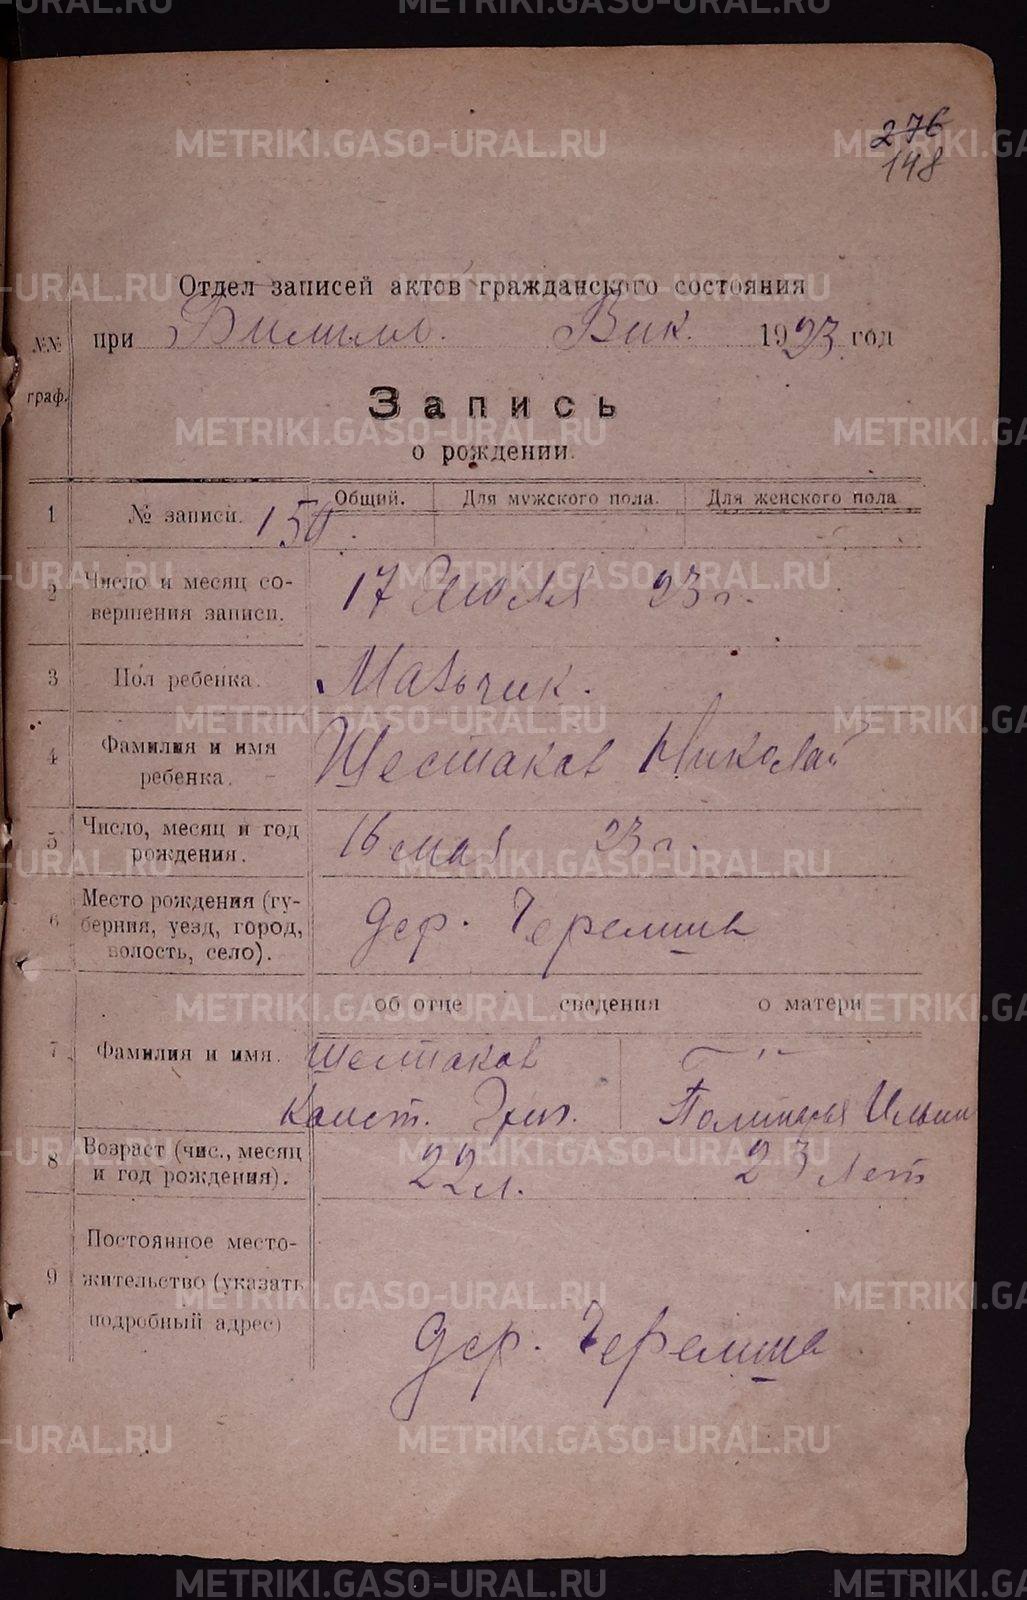 276
148
Отдел записей актов гражданского состояния
при Билимб. Вик. 1923 год
№№ граф.
Запись
о рождении.
Общий. Для мужского пола. Для женского пола
1 № записи. 150
2 Число и месяц совершения записи. 17 Июля 23 г.
3 Пол ребенка. Мальчик.
4 Фамилия и имя ребенка. Шестаков Николай
5 Число, месяц и год рождения. 16 мая 23 г.
6 Место рождения (губерния, уезд, город, волость, село). дер. Черемша
об отце сведения о матери
7 Фамилия и имя. Шестаков —"—
Конст. Полинарья Ильин
8 Возраст (чис., месяц и год рождения). 22 л. 23 лет
9 Постоянное местожительство (указать подробный адрес) дер. Черемша
METRIKI.GASO-URAL.RU